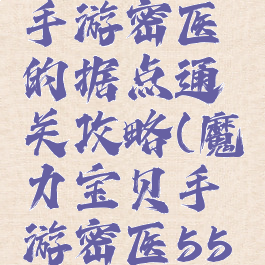 手游密医
的据点通
关攻略(魔
力宝贝手
游密医55